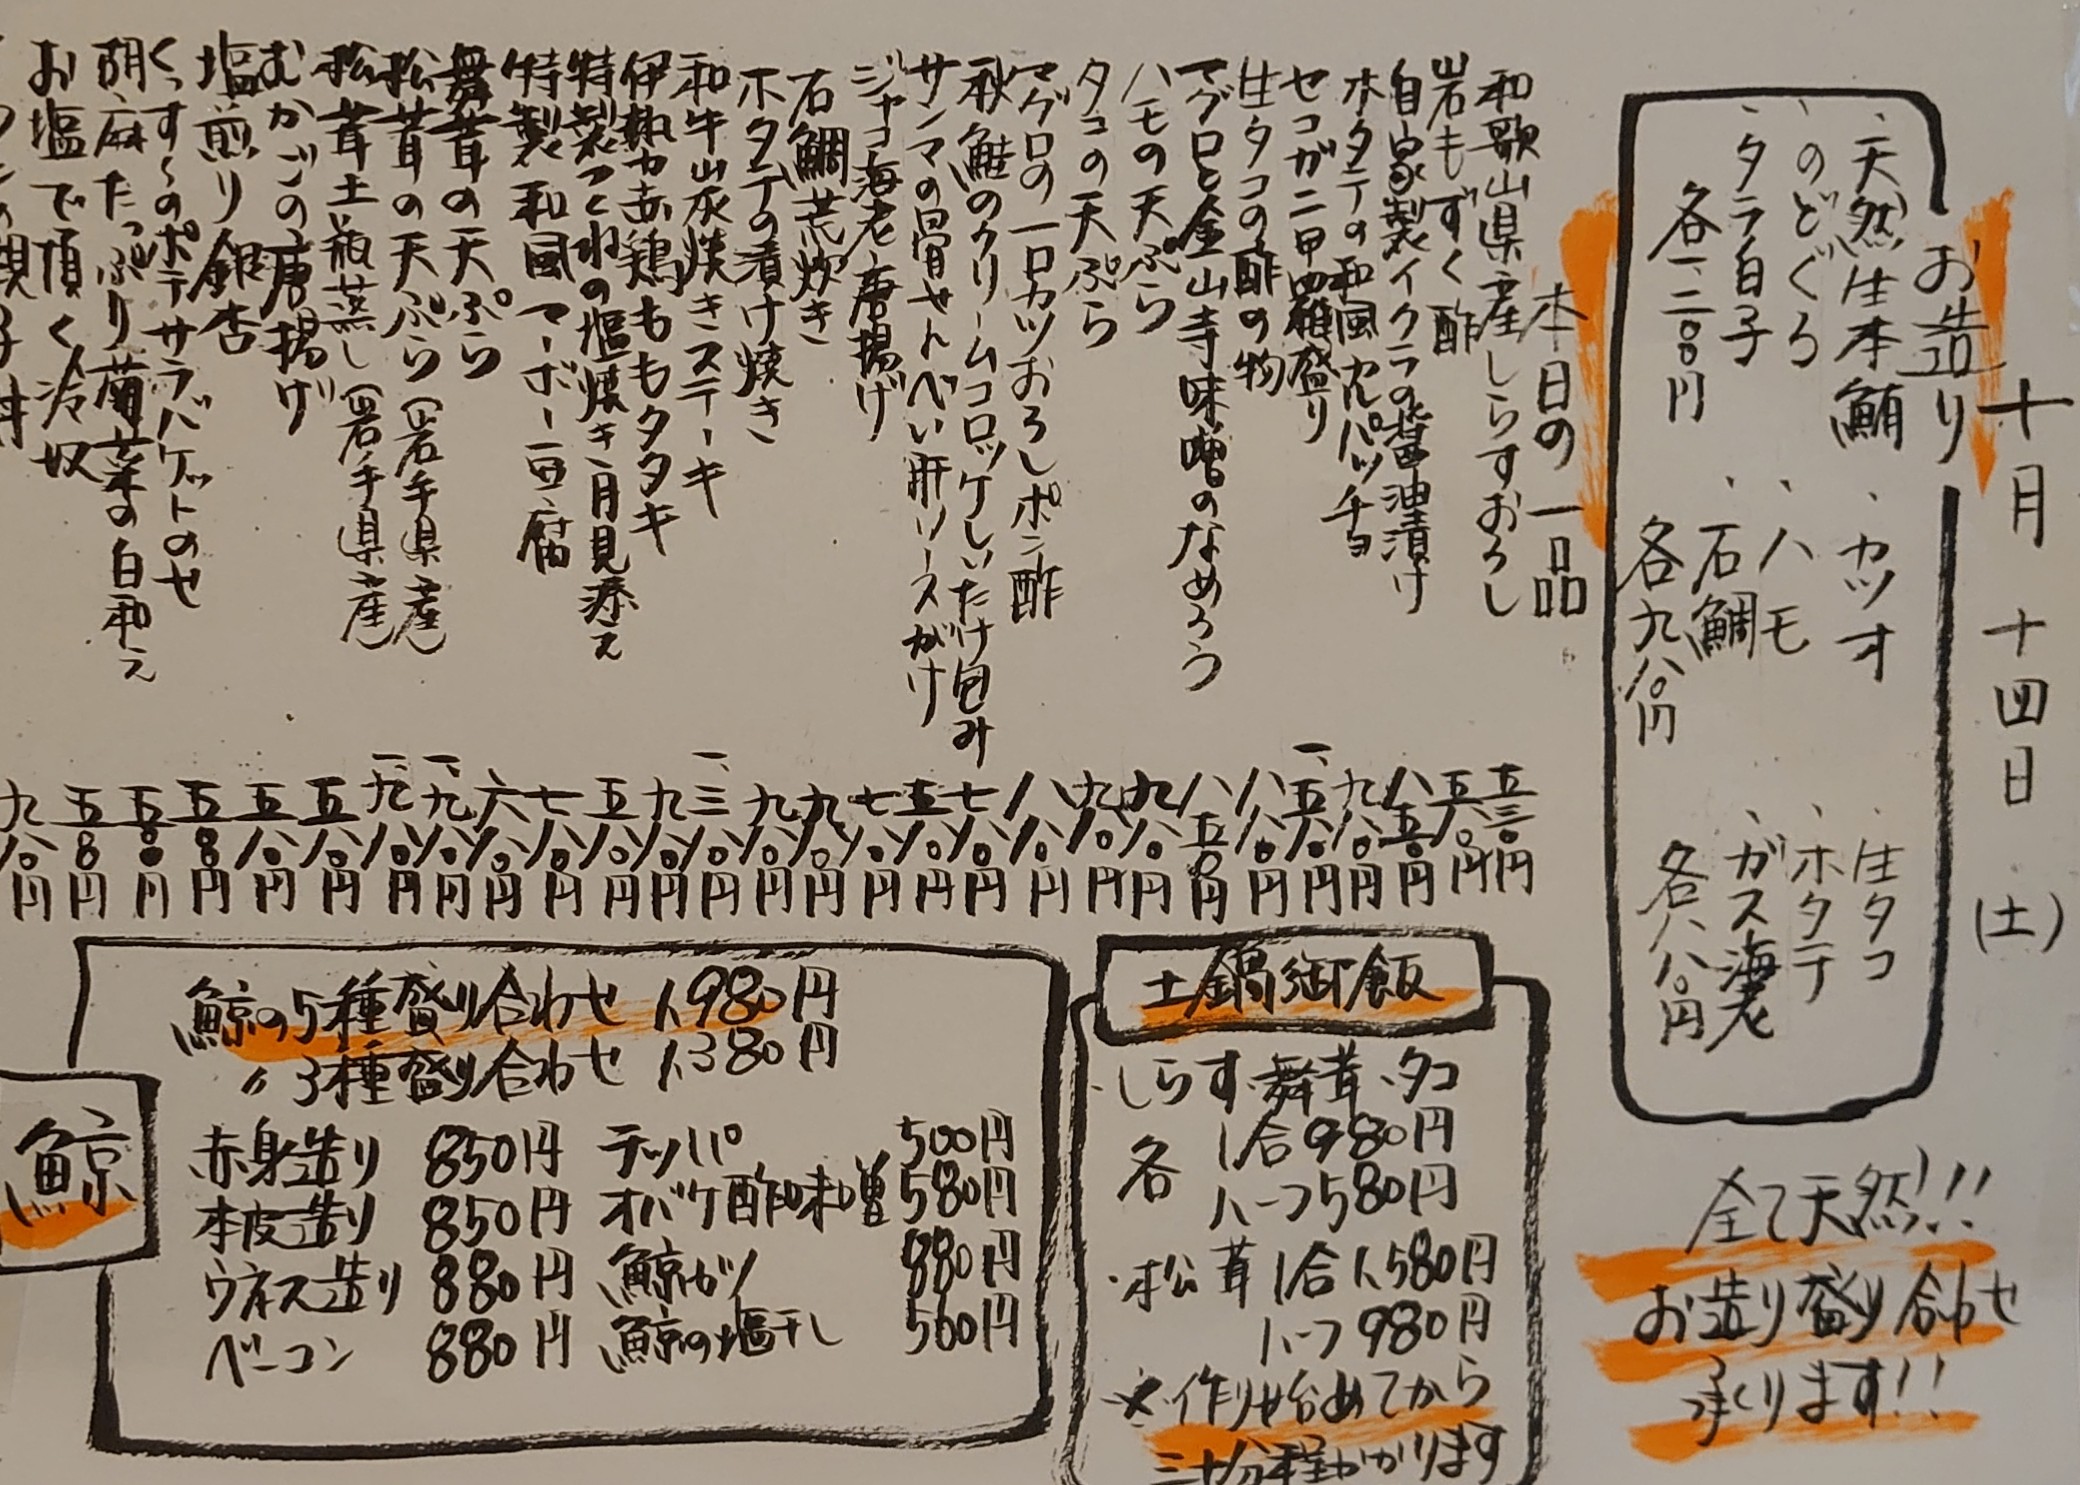 十月十四日(土)
お造り
、天然生本鮪
、のどぐろ
、タラ白子
各一、二〇〇円
、カツオ
、ハモ
、石鯛
各九八〇円
、生タコ
、ホタテ
、ガス海老
各八八〇円
全て天然!!!
お造り盛り合わせ
承ります!!
本日の一品
和歌山県産しらすおろし 五三〇円
岩もずく酢 五八〇円
自家製イクラの醤油漬け 八五〇円
ホタテの和風カルパッチョ 九八〇円
セコガニ甲羅盛り 一、五八〇円
生タコの酢の物 八八〇円
マグロと金山寺味噌のなめろう 八五〇円
ハモの天ぷら 九八〇円
タコの天ぷら 九八〇円
マグロの一口カツおろしポン酢 八八〇円
秋鮭のクリームコロッケしいたけ包み 七八〇円
サンマの骨せんべい肝ソースがけ 五八〇円
ジャコ海老唐揚げ 七八〇円
石鯛荒炊き 九八〇円
ホタテの漬け焼き 九八〇円
和牛炭焼きステーキ 一、三八〇円
伊勢赤鶏ももタタキ 九八〇円
特製つくねの塩焼き月見添え 五八〇円
特製和風マーボー豆腐 七八〇円
舞茸の天ぷら 六八〇円
松茸の天ぷら(岩手県産) 一、九八〇円
松茸土瓶蒸し(岩手県産) 一、九八〇円
むかごの唐揚げ 五八〇円
塩煎り銀杏 五八〇円
くっす〜のポテサラバケットのせ 五八〇円
胡麻たっぷり菊菜の白和え 五八〇円
お塩で頂く冷奴 五〇〇円
九八〇円
土鍋御飯
、しらす、舞茸、タコ
各 1合980円
ハーフ580円
・松茸 1合1,580円
ハーフ980円
※作り始めてから
三十分程かかります
鯨
鯨の5種盛り合わせ 1,980円
〃3種盛り合わせ 1,380円
赤身造り 850円 テッパ 500円
本皮造り 850円 オバケ酢味噌 580円
ウネス造り 880円 鯨カツ 880円
ベーコン 880円 鯨の塩干し 560円